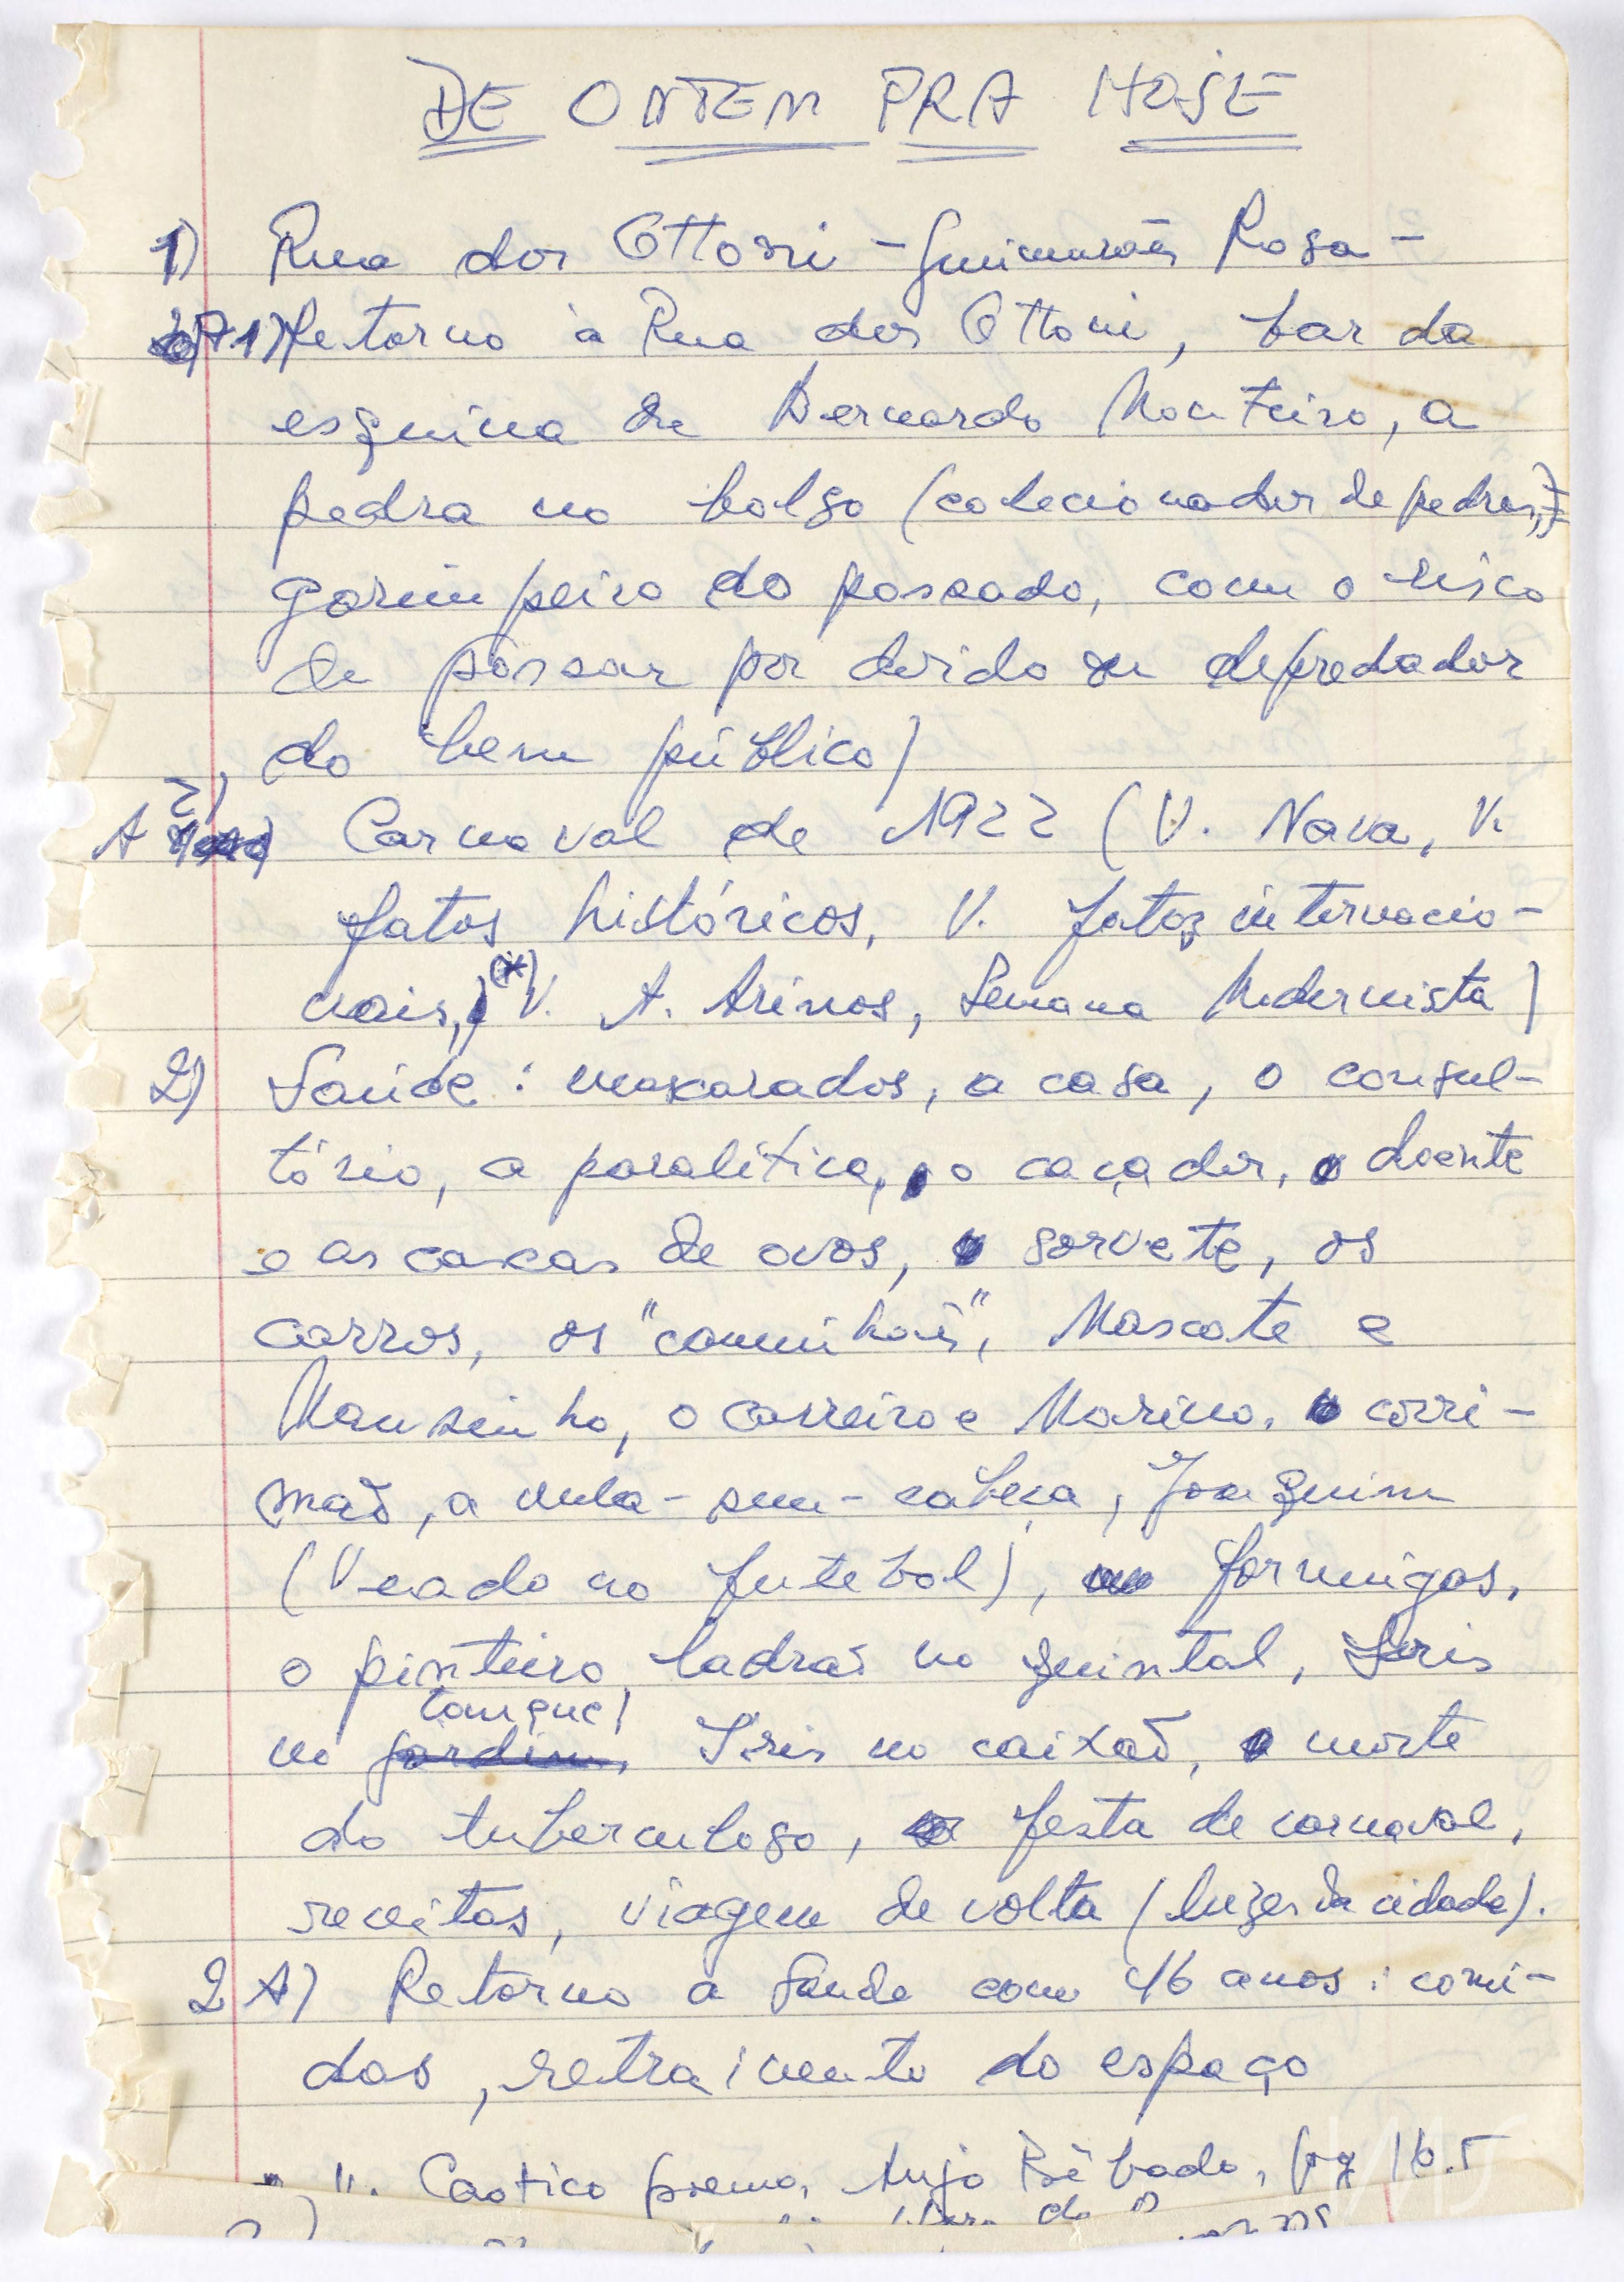 DE ONTEM PRA HOJE
1) Rua dos Ottoni - Guimarães Rosa -
A1) Retorno à Rua dos Ottoni, bar da
esquina de Bernardo Monteiro, a
pedra no bolso (colecionador de pedras,
garimpeiro do passado, com o risco
de passar por doido ou depredador
do bem público)
A 2) Carnaval de 1922 (V. Nava, V.
fatos históricos, V. fatos internacio-
nais, (*) V. A. Arinos, Semana Modernista)
2) Saúde: mascarados, a casa, o consul-
tório, a paralítica, o caçador, o doente
e as cascas de ovos, sorvete, os
carros, os "caminhões", Mascate e
Mansinho, o carreiro e Marino, corri-
mão, a mula-sem-cabeça, Joaquim
(Veado no futebol), formigas,
o pinteiro, ladrão no quintal, Iris
no tanque, Iris no caixão, morte
do tuberculoso, festa de carnaval,
receitas, viagem de volta (luzes da cidade).
2 A) Retorno a Saúde com 46 anos: comi-
das, retraimento do espaço
* V. Caótico poema, Anjo Bêbado, pg 16.